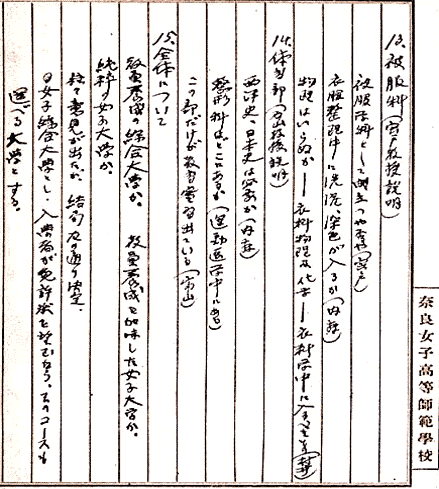 13. 被服科（宍戸教授説明）
被服学科として成立つや否や（宍戸）
衣服整理中に洗洗、染色が入るか（内藤）
物理はいらぬか――衣料物理及化学――衣料学中に入る
14. 体育部（宮山教授説明）
西洋史、日本史は必要か（内藤）
整形科はどこにあるか（運動医学中にある）
この部だけが教育量が出ている
15. 全体について
教員養成の綜合大学か、 教員養成を加味した女子大学か、
純粋の女子大学か、
種々意見が出たが、結局次の通り決定、
女子綜合大学とし、入学者が免許状を望むなら、そのコースも
選べる大学とする。
奈良女子高等師範學校